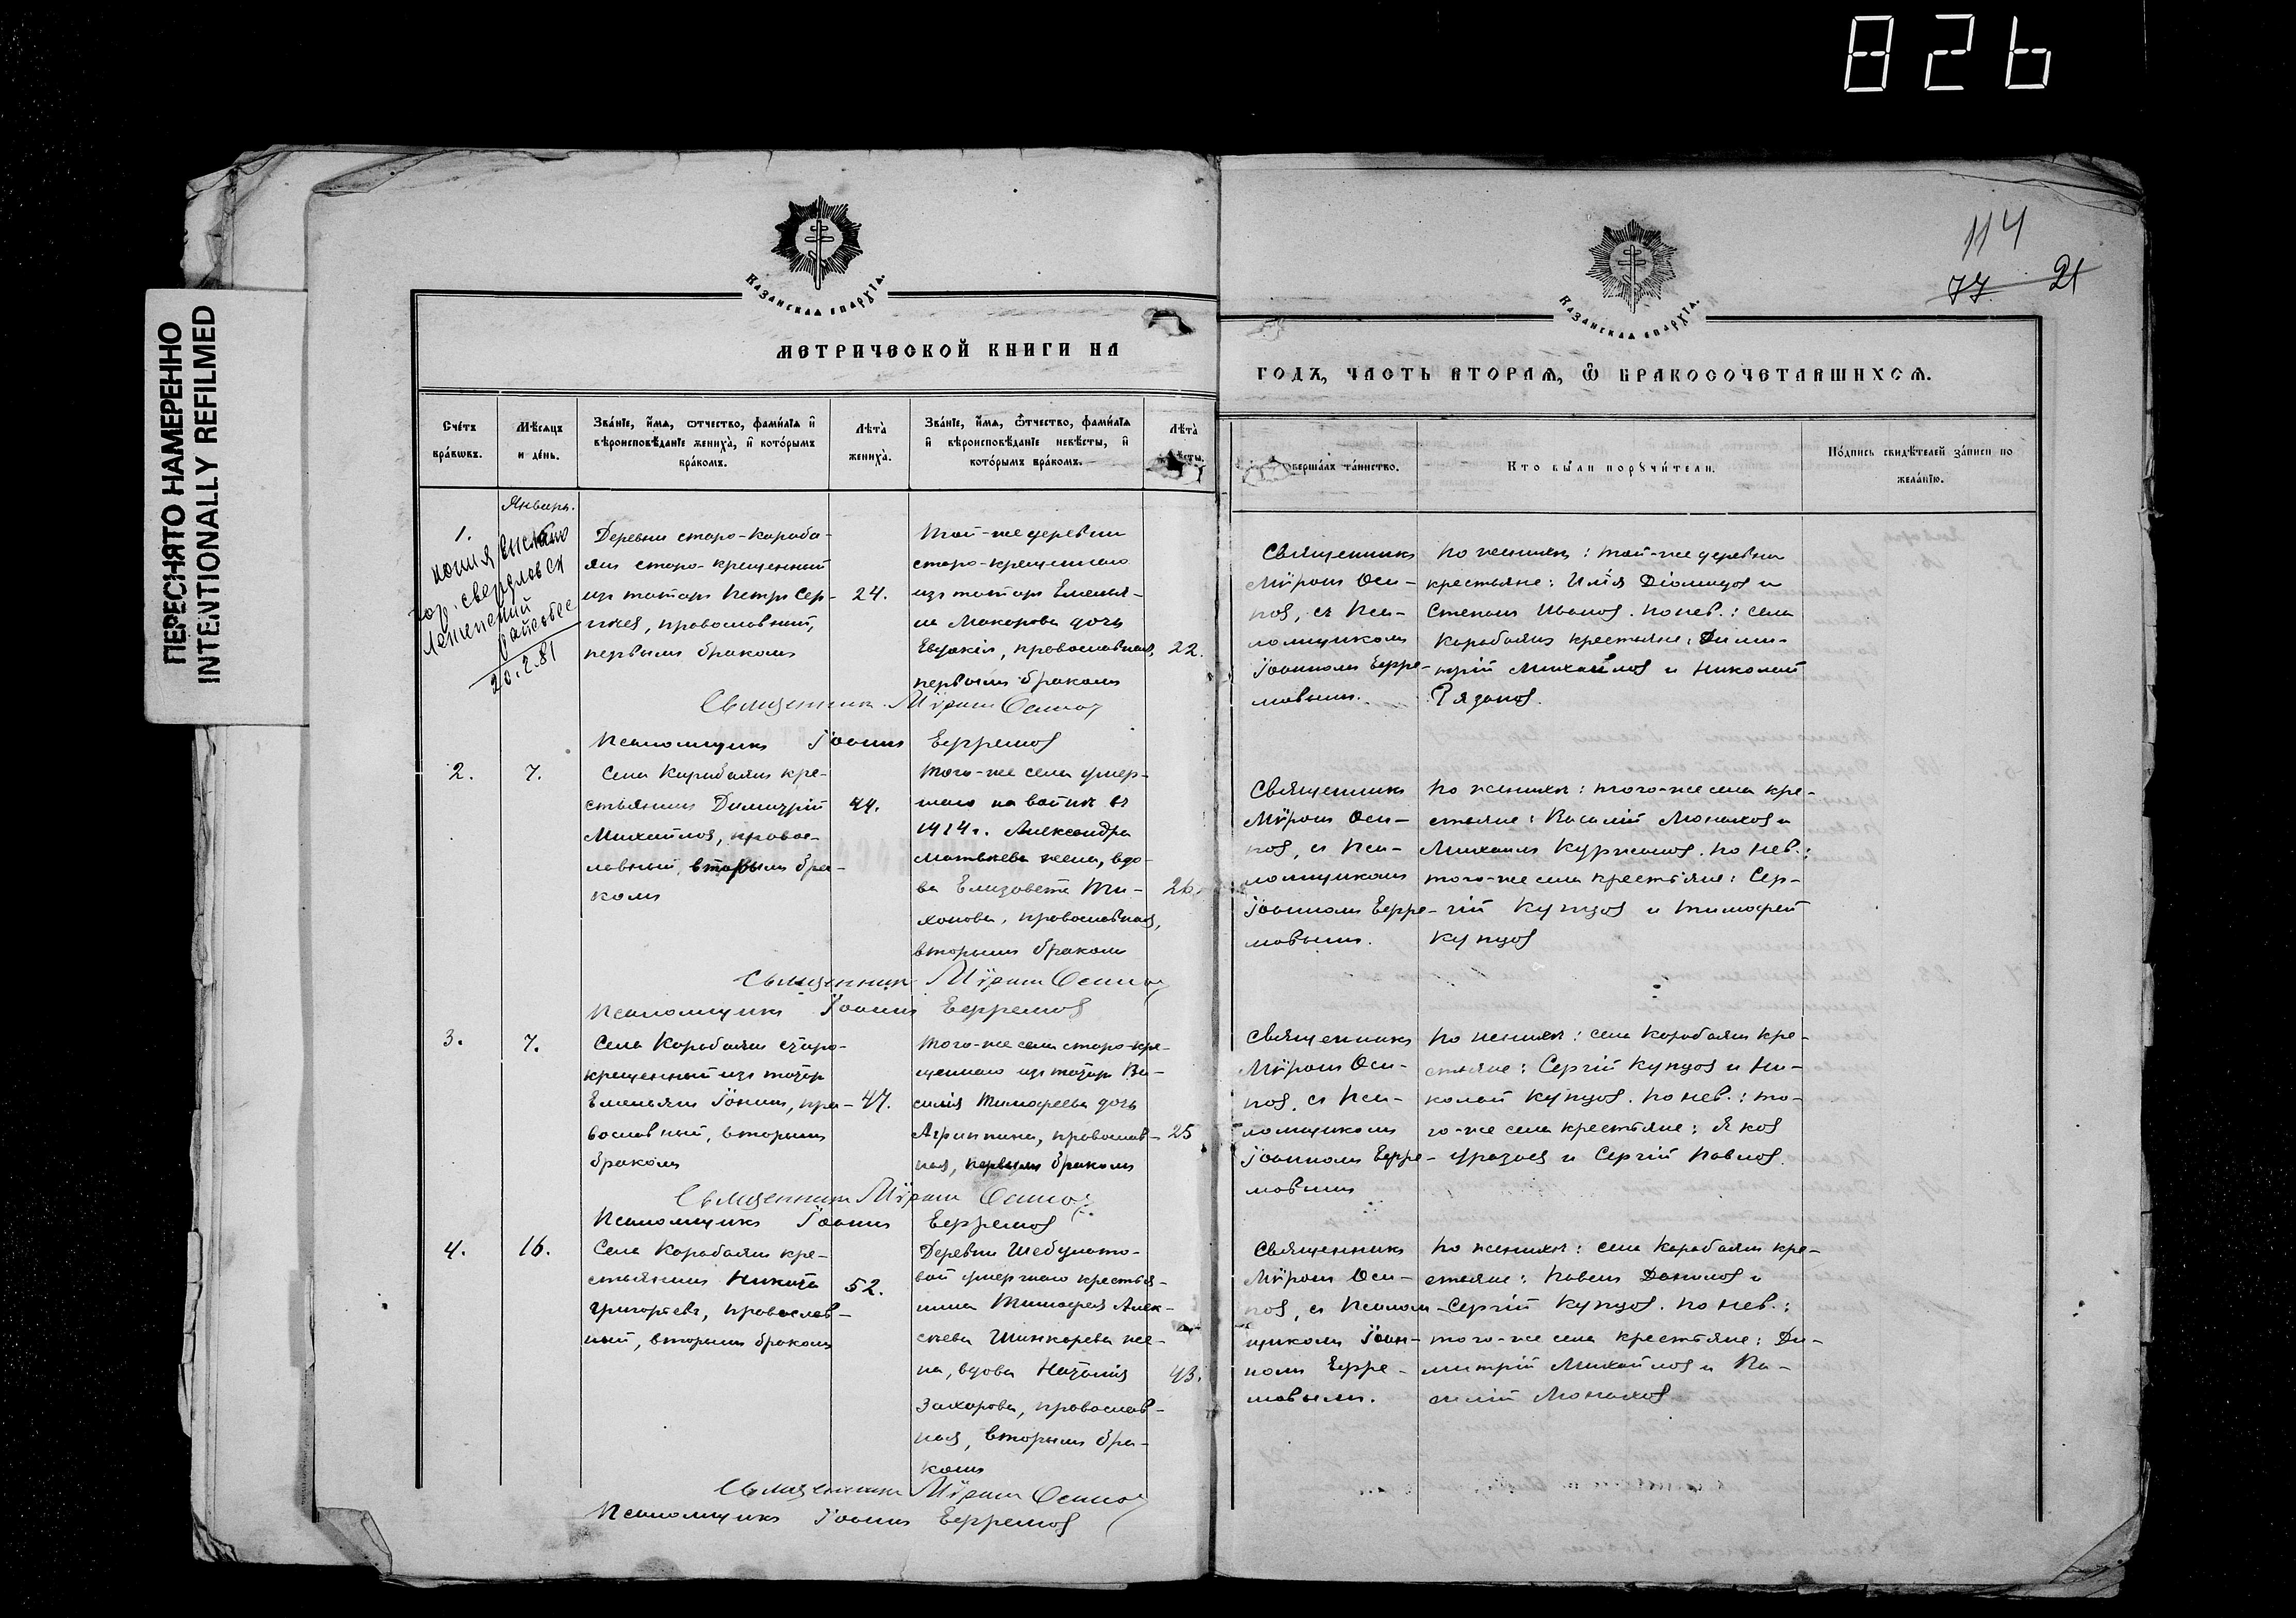 826
ПЕРЕСНЯТО НАМЕРЕННО
INTENTIONALLY REFILMED
114
77. 21
КАЗАНСКАѦ ЕПАРХІѦ.
КАЗАНСКАѦ ЕПАРХІѦ.
МЕТРИЧЕСКОЙ КНИГИ НА
ГОДЪ, ЧАСТЬ ВТОРАѦ, Ѿ БРАКОСОЧЕТАВШИХСѦ.
Счетъ браковъ.
Мѣсяцъ и день.
Званіе, имя, отчество, фамилія и
вѣроисповѣданіе жениха, и которымъ
бракомъ.
Лѣта
жениха.
Званіе, имя, отчество, фамилія
и вѣроисповѣданіе невѣсты, и
которымъ бракомъ.
Лѣта
вершалъ таинство.
Кто были поручители.
Подпись свидѣтелей записи по
желанію.
Январь.
1.
копия выслана
гор. Свердловск
Ленинский
20.2.81
Деревни старо-Караба-
ян старо-крещенный
изъ татаръ Петръ Сер-
гѣевъ, православный,
первымъ бракомъ
24.
Той-же деревни
старо-крещеннаго
изъ татаръ Емелья-
на Макарова дочь
Евдокія, православная,
первымъ бракомъ
22.
Священникъ
Мѵронъ Оси-
повъ, съ Пса-
ломщикомъ
Іоанномъ Ефре-
мовымъ.
По женихѣ: той-же деревни
крестьяне: Илія Діомидовъ и
Степанъ Ивановъ. По нев.: села
Карабаянъ крестьяне: Дими-
трій Михайловъ и Николай
Рязановъ.
Священникъ Мѵронъ Осипов
Псаломщикъ Іоаннъ Ефремовъ
2.
7.
Села Карабаянъ кре-
стьянинъ Димитрій
Михайловъ, правос-
лавный, вторымъ бра-
комъ
44.
Того-же села умер-
шаго на войнѣ въ
1914 г. Александра
Матвѣева жена, вдо-
ва Елизавета Ти-
хонова, православная,
вторымъ бракомъ
26.
Священникъ
Мѵронъ Оси-
повъ, съ Пса-
ломщикомъ
Іоанномъ Ефре-
мовымъ.
По женихѣ: того-же села кре-
стьяне: Василій Монаховъ и
Михаилъ Куржановъ. По нев.:
того-же села крестьяне: Сер-
гій Купцовъ и Тимофей
Купцовъ
Священникъ Мѵронъ Осипов
Псаломщикъ Іоаннъ Ефремовъ
3.
7.
Села Карабаянъ старо-
крещенный изъ татаръ
Емельянъ Іонинъ, пра-
вославный, вторымъ
бракомъ
47.
Того-же села старо-кре-
щеннаго изъ татаръ Ва-
силія Тимофеева дочь
Агриппина, православ-
ная, первымъ бракомъ
25
Священникъ
Мѵронъ Оси-
повъ, съ Пса-
ломщикомъ
Іоанномъ Ефре-
мовымъ
По женихѣ: села Карабаянъ кре-
стьяне: Сергій Купцовъ и Ни-
колай Купцовъ. По нев.: то-
го-же села крестьяне: Яковъ
Уразаевъ и Сергій Павловъ.
Священникъ Мѵронъ Осипов
Псаломщикъ Іоаннъ Ефремовъ
4.
16.
Села Карабаянъ кре-
стьянинъ Никита
Григорьевъ, православ-
ный, вторымъ бракомъ
52.
Деревни Шебулато-
вой умершаго крестья-
нина Тимофея Алек-
сѣева Шинкарева же-
на, вдова Наталія
Захарова, православ-
ная, вторымъ бра-
комъ
43.
Священникъ
Мѵронъ Оси-
повъ, съ Псалом-
щикомъ Іоан-
номъ Ефре-
мовымъ.
По женихѣ: села Карабаянъ кре-
стьяне: Павелъ Даниловъ и
Сергій Купцовъ. По нев.:
того-же села крестьяне: Ди-
митрій Михайловъ и Ва-
силій Монаховъ
Священникъ Мѵронъ Осипов
Псаломщикъ Іоаннъ Ефремовъ